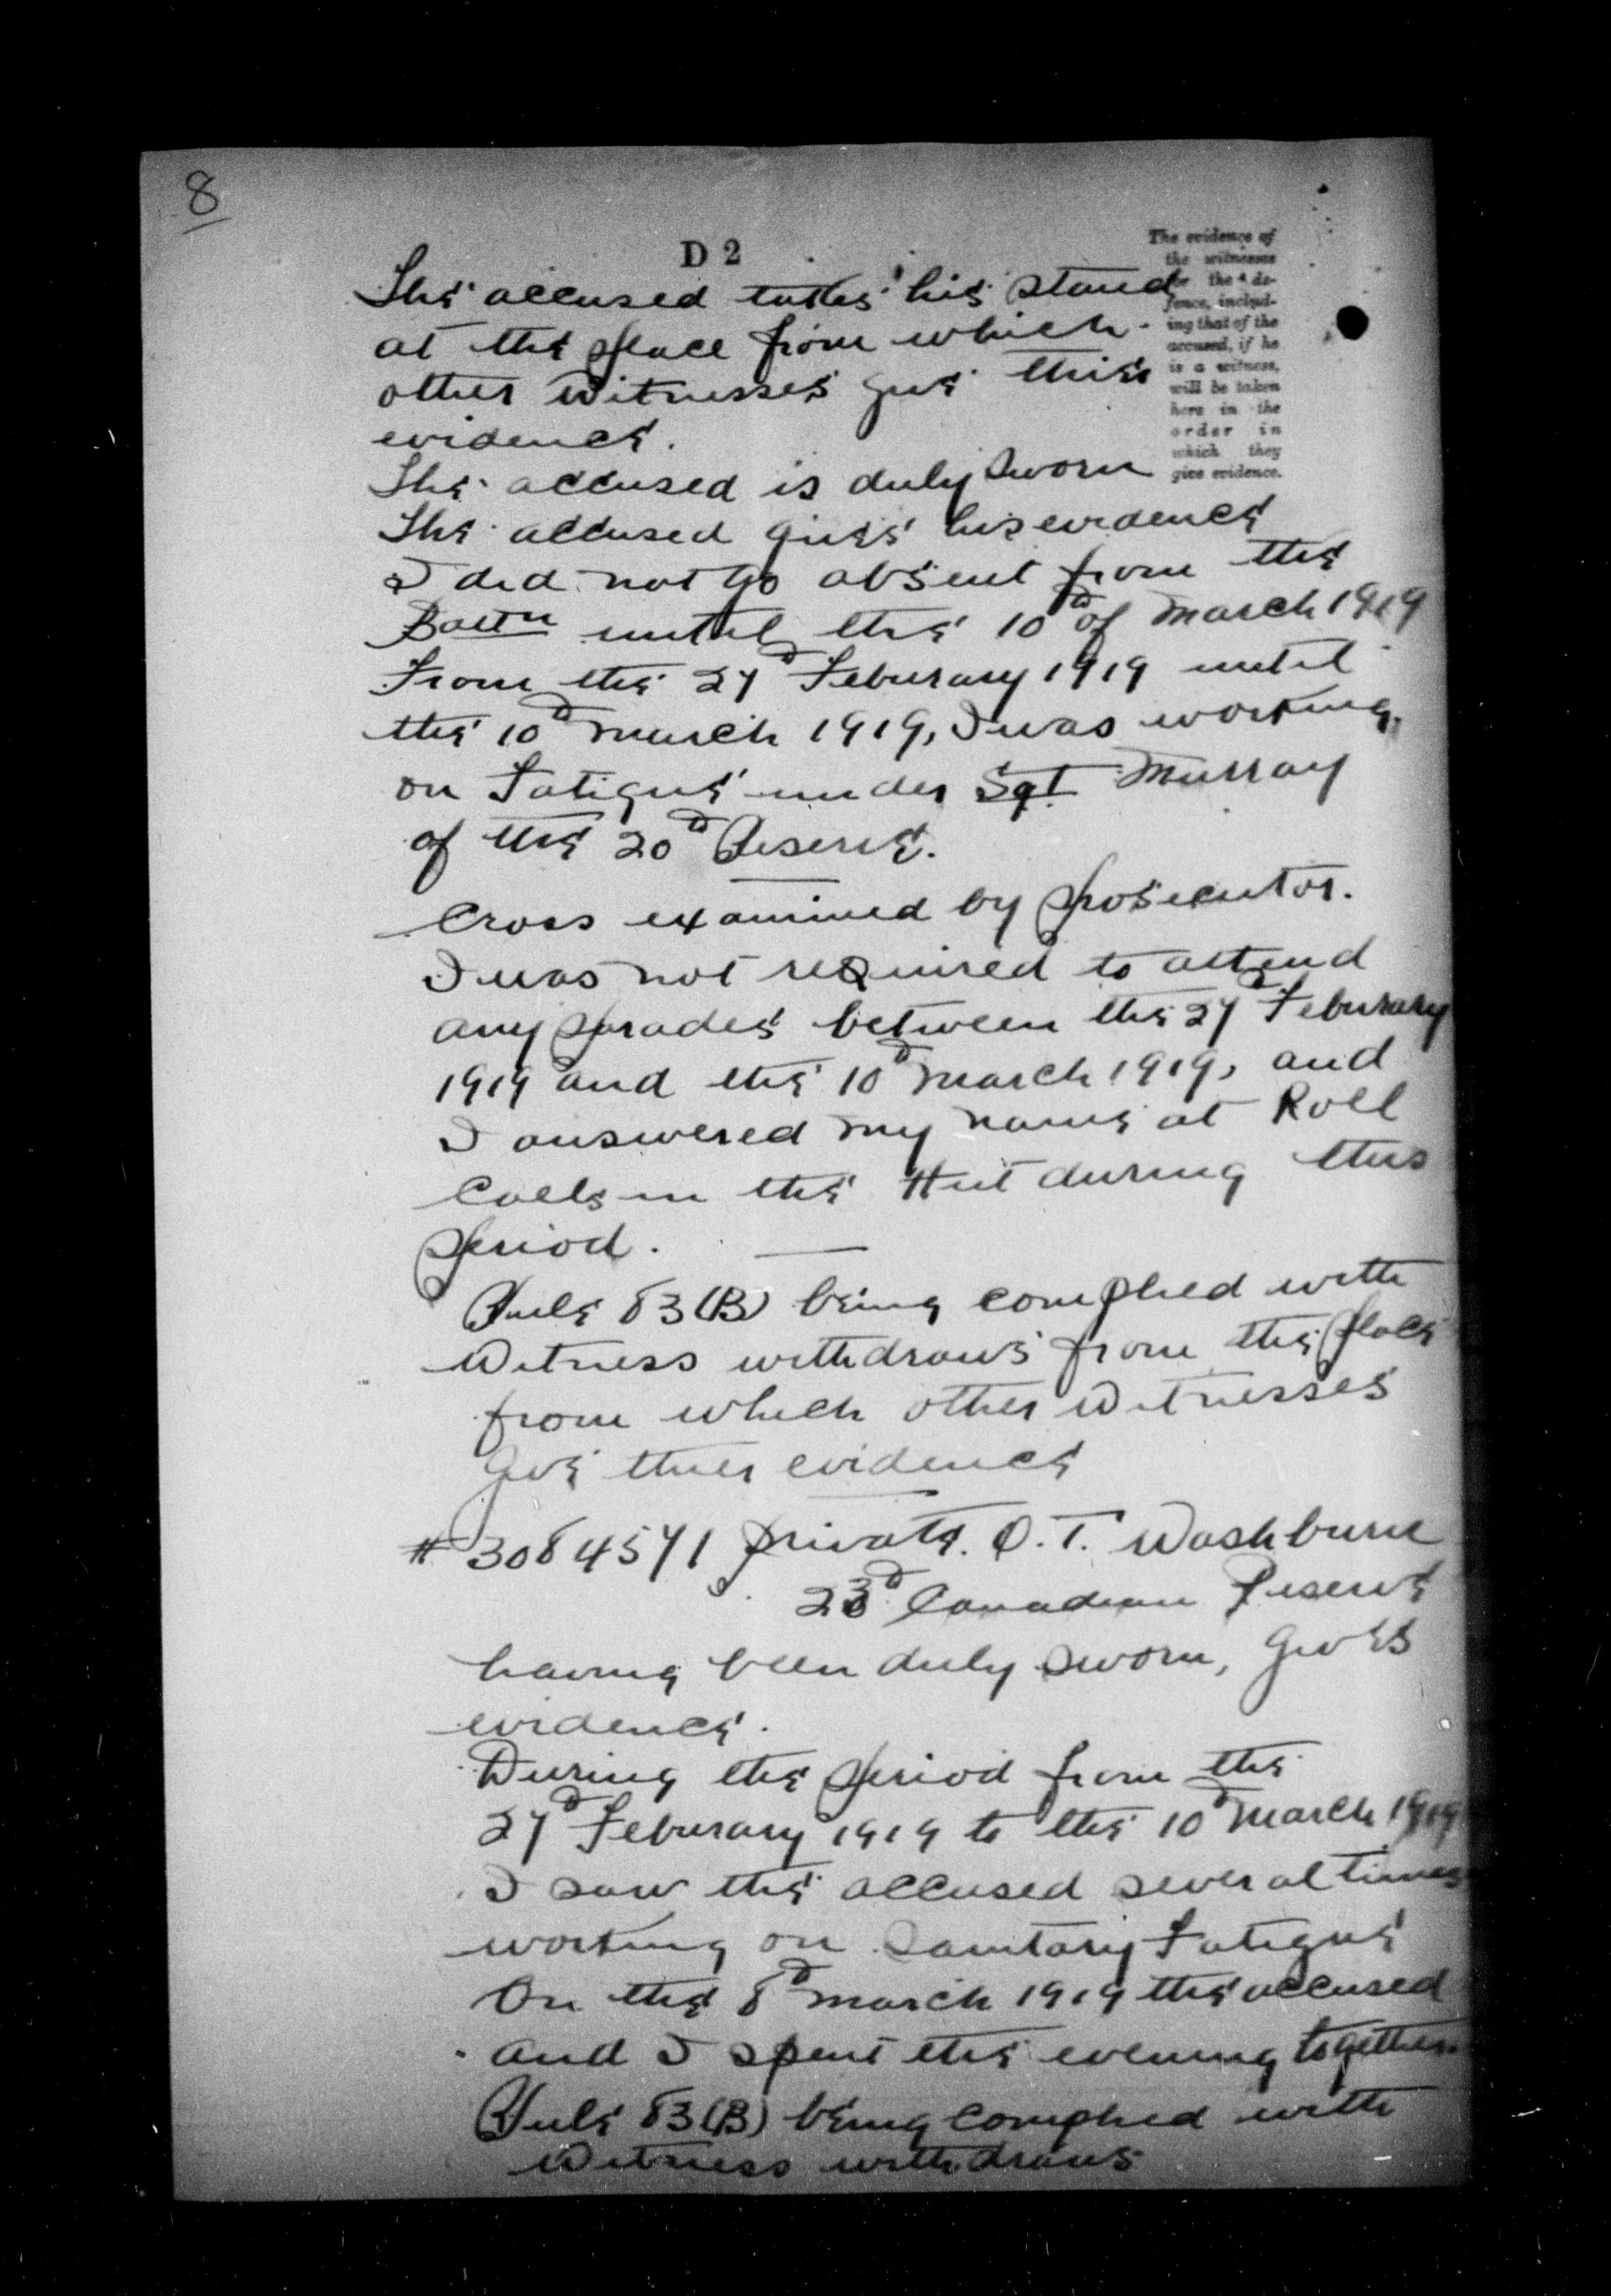 8
D 2
The evidence of
the witnesses
for the de-
fence, includ-
ing that of the
accused, if he
is a witness,
will be taken
here in the
order in
which they
give evidence.
The accused takes his stand
at the place from which
other Witnesses give their
evidence.
The accused is duly Sworn
The accused gives his evidence
I did not go absent from the
Battn until the 10th of March 1919
From the 27th Feburary 1919 until
the 10th March 1919, I was working
on Fatigue under Sgt Murray
of the 20th Reserve.
Cross examined by Prosecutor.
I was not reQuired to attend
any Parades between the 27th Feburary
1919 and the 10th March 1919, and
I answered my name at Roll
Calls in the Hut during this
Period.
Rule 83(B) being complied with
Witness withdraws from the place
from which other Witnesses
give their evidence
# 3084571 Private. O. T. Washburn
23d Canadian Reserve
having been duly sworn, Gives
evidence.
During the Period from the
27th Feburary 1919 to the 10th March 1919
I saw the accused several times
working on Sanitary Fatigue
On the 8th March 1919 the accused
and I spent the evening together.
Rule 83(B) being complied with
Witness withdraws